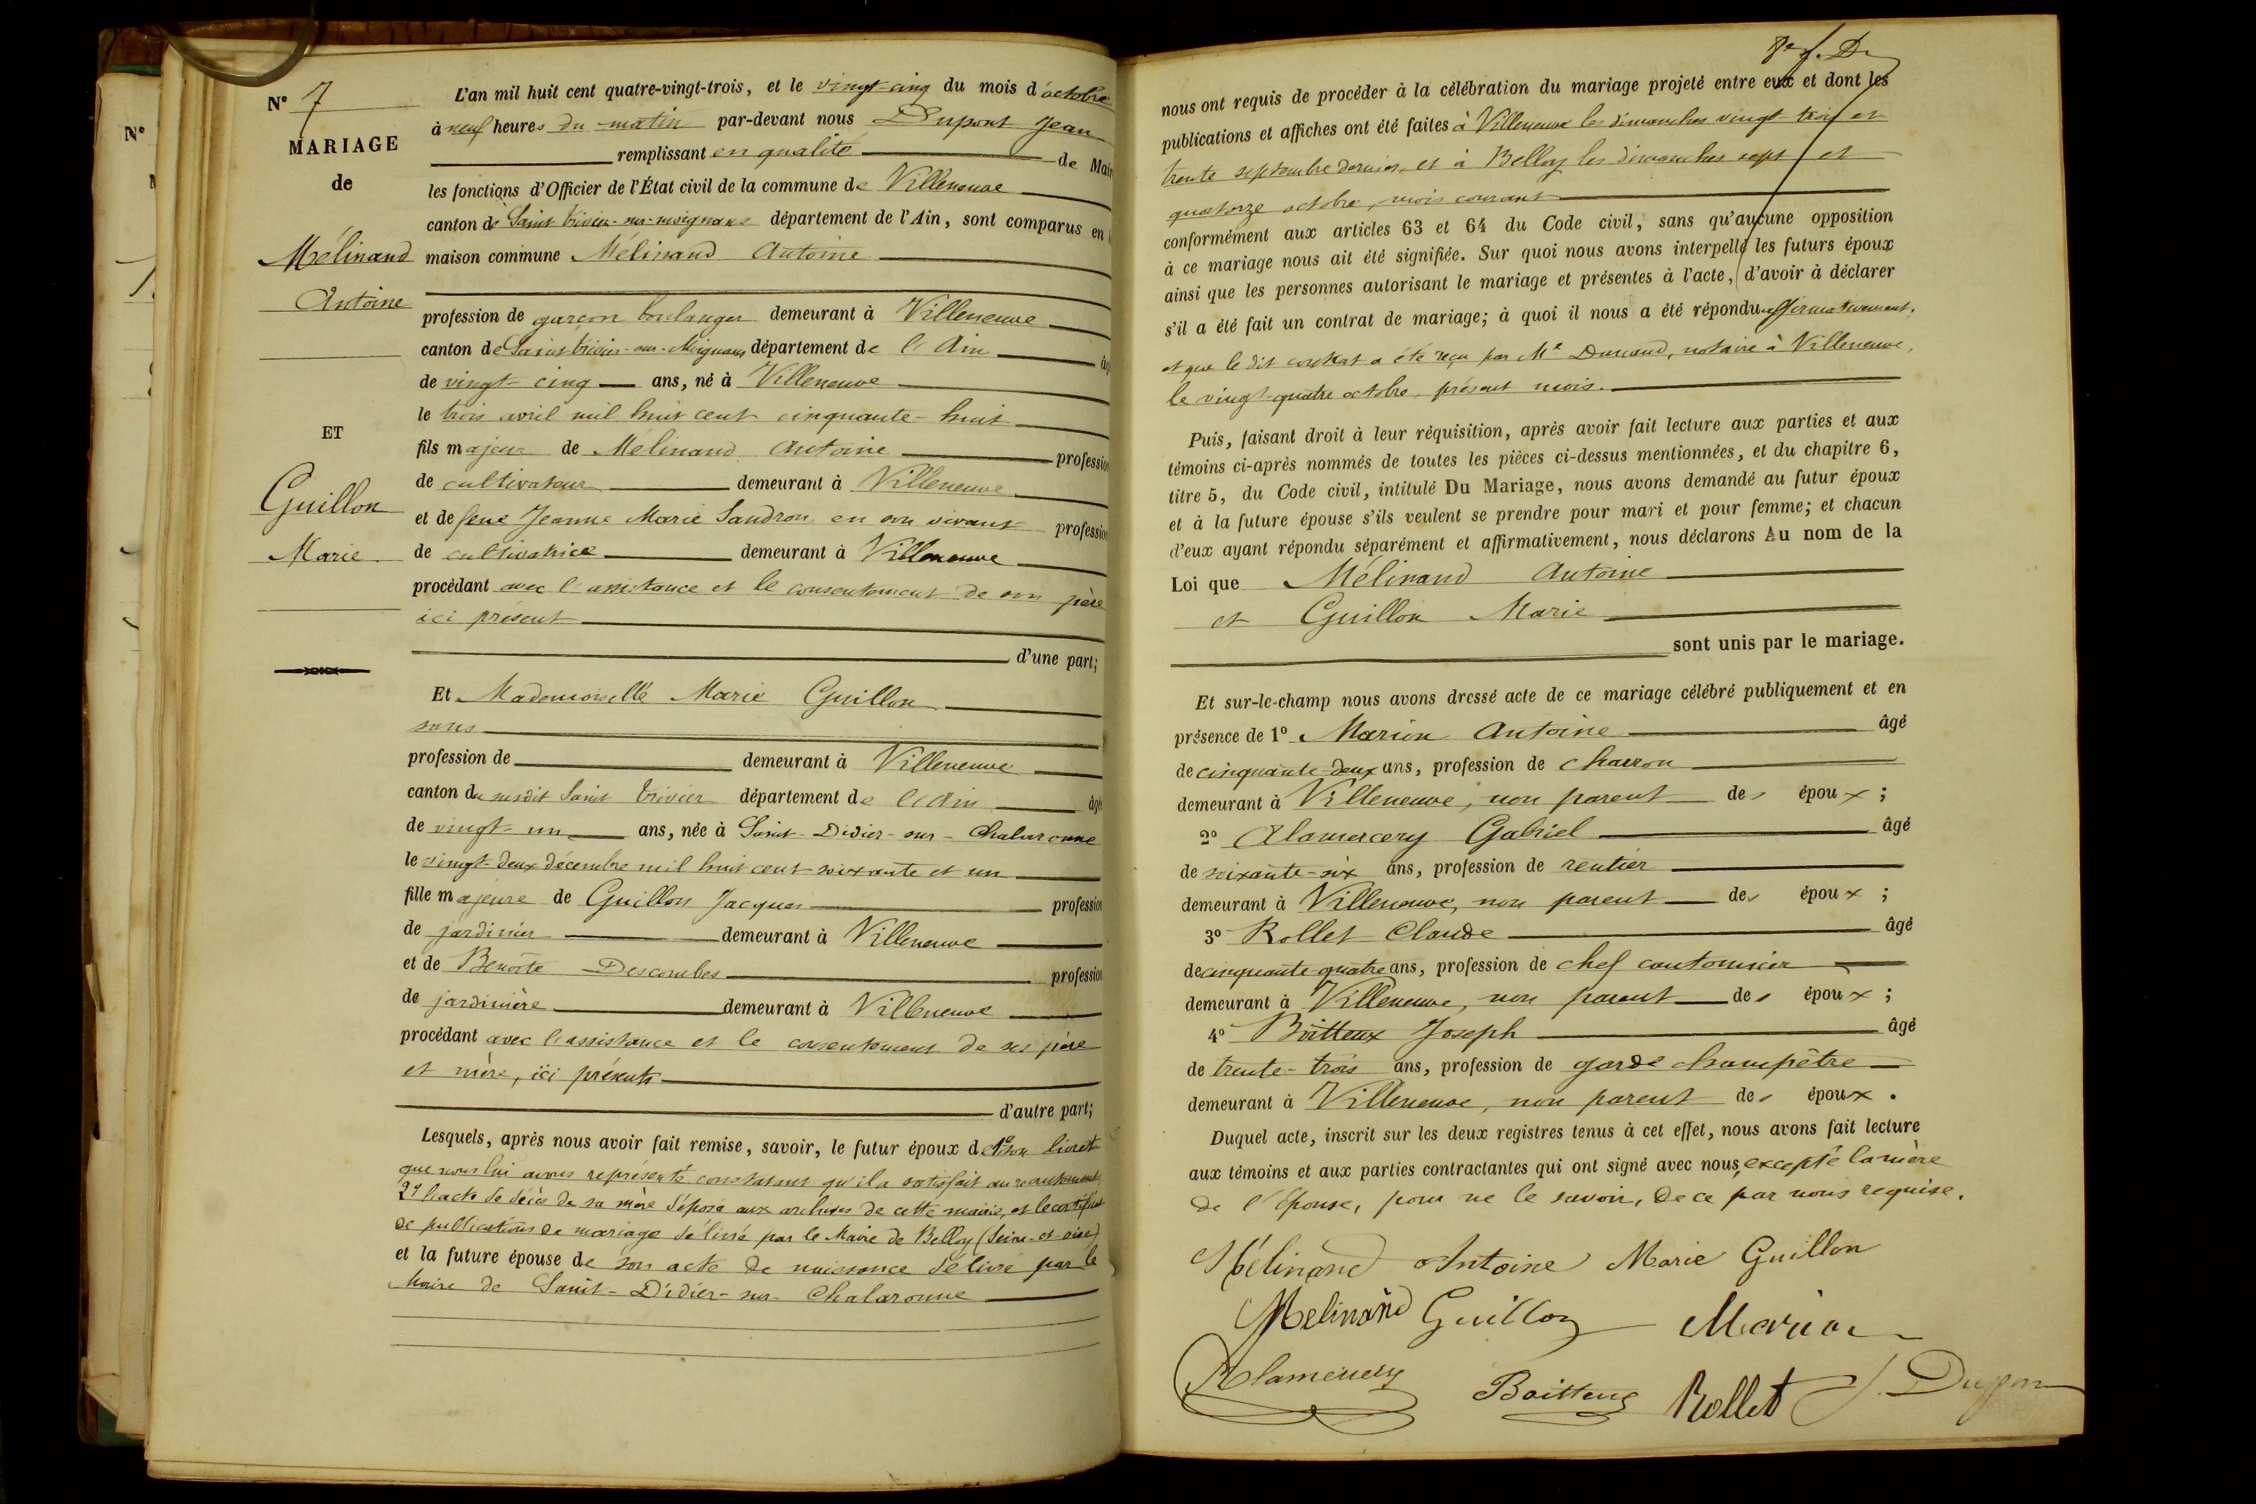 N° 7
MARIAGE
de
Mélinand
Antoine
ET
Guillon
Marie
N°
L'an mil huit cent quatre-vingt-trois, et le vingt-cinq du mois d'octobre
à neuf heures du matin par-devant nous Dupont Jean
remplissant en qualité de Mair
les fonctions d'Officier de l'État civil de la commune de Villeneuve
canton de Saint trivier-sur-moignans département de l'Ain, sont comparus en
maison commune Mélinand Antoine
profession de garçon boulanger demeurant à Villeneuve
canton de Saint-trivier-sur-Moignans département de l'Ain âg
de vingt-cinq ans, né à Villeneuve
le trois avril mil huit cent cinquante-huit
fils majeur de Mélinand Antoine profession
de cultivateur demeurant à Villeneuve
et de feue Jeanne Marie Sandron en son vivant profession
de cultivatrice demeurant à Villeneuve
procédant avec l'assistance et le consentement de son père
ici présent
d'une part;
Et Mademoiselle Marie Guillon
sans
profession de demeurant à Villeneuve
canton du susdit Saint trivier département de l'Ain âgé
de vingt-un ans, née à Saint-Didier-sur-Chalaronne
le vingt-deux décembre mil huit cent soixante et un
fille majeure de Guillon Jacques profession
de jardinier demeurant à Villeneuve
et de Benoîte Descombes profession
de jardinière demeurant à Villeneuve
procédant avec l'assistance et le consentement de ses père
et mère, ici présents
d'autre part;
Lesquels, après nous avoir fait remise, savoir, le futur époux de 1° son livret
que nous lui avons représenté constatant qu'il a satisfait au recrutement
2° l'acte de décès de sa mère déposé aux archives de cette mairie, et le certificat
de publications de mariage délivré par le Maire de Belloy (Seine-et-oise)
et la future épouse de son acte de naissance délivré par le
Maire de Saint-Didier-sur-Chalaronne
nous ont requis de procéder à la célébration du mariage projeté entre eux et dont les
publications et affiches ont été faites à Villeneuve les dimanches vingt-trois et
trente septembre dernier, et à Belloy les dimanches sept et
quatorze octobre, mois courant
conformément aux articles 63 et 64 du Code civil, sans qu'aucune opposition
à ce mariage nous ait été signifiée. Sur quoi nous avons interpellé les futurs époux
ainsi que les personnes autorisant le mariage et présentes à l'acte, d'avoir à déclarer
s'il a été fait un contrat de mariage; à quoi il nous a été répondu affirmativement,
et que le dit contrat a été reçu par Me Durand, notaire à Villeneuve,
le vingt-quatre octobre, présent mois.
Puis, faisant droit à leur réquisition, après avoir fait lecture aux parties et aux
témoins ci-après nommés de toutes les pièces ci-dessus mentionnées, et du chapitre 6,
titre 5, du Code civil, intitulé Du Mariage, nous avons demandé au futur époux
et à la future épouse s'ils veulent se prendre pour mari et pour femme; et chacun
d'eux ayant répondu séparément et affirmativement, nous déclarons Au nom de la
Loi que Mélinand Antoine
et Guillon Marie
sont unis par le mariage.
Et sur-le-champ nous avons dressé acte de ce mariage célébré publiquement et en
présence de 1° Marion Antoine âgé
de cinquante-deux ans, profession de charron
demeurant à Villeneuve, non parent des époux;
2° Alamercery Gabriel âgé
de soixante-six ans, profession de rentier
demeurant à Villeneuve, non parent des époux;
3° Rollet Claude âgé
de cinquante-quatre ans, profession de chef cantonnier
demeurant à Villeneuve, non parent des époux;
4° Boitteux Joseph âgé
de trente-trois ans, profession de garde champêtre
demeurant à Villeneuve, non parent des époux.
Duquel acte, inscrit sur les deux registres tenus à cet effet, nous avons fait lecture
aux témoins et aux parties contractantes qui ont signé avec nous, excepté la mère
de l'épouse, pour ne le savoir, de ce par nous requise.
Mélinand Antoine Marie Guillon
Melinand Guillon Marion
Alamercery Boitteux Rollet J. Dupont